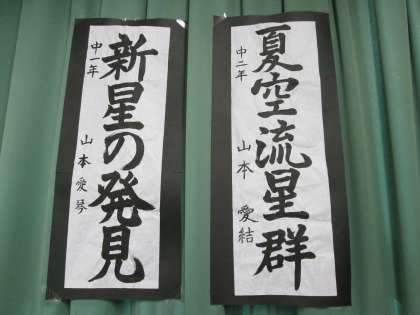 夏空流星群
中二年
山本 愛結
新星の発見
中一年
山本 愛琴